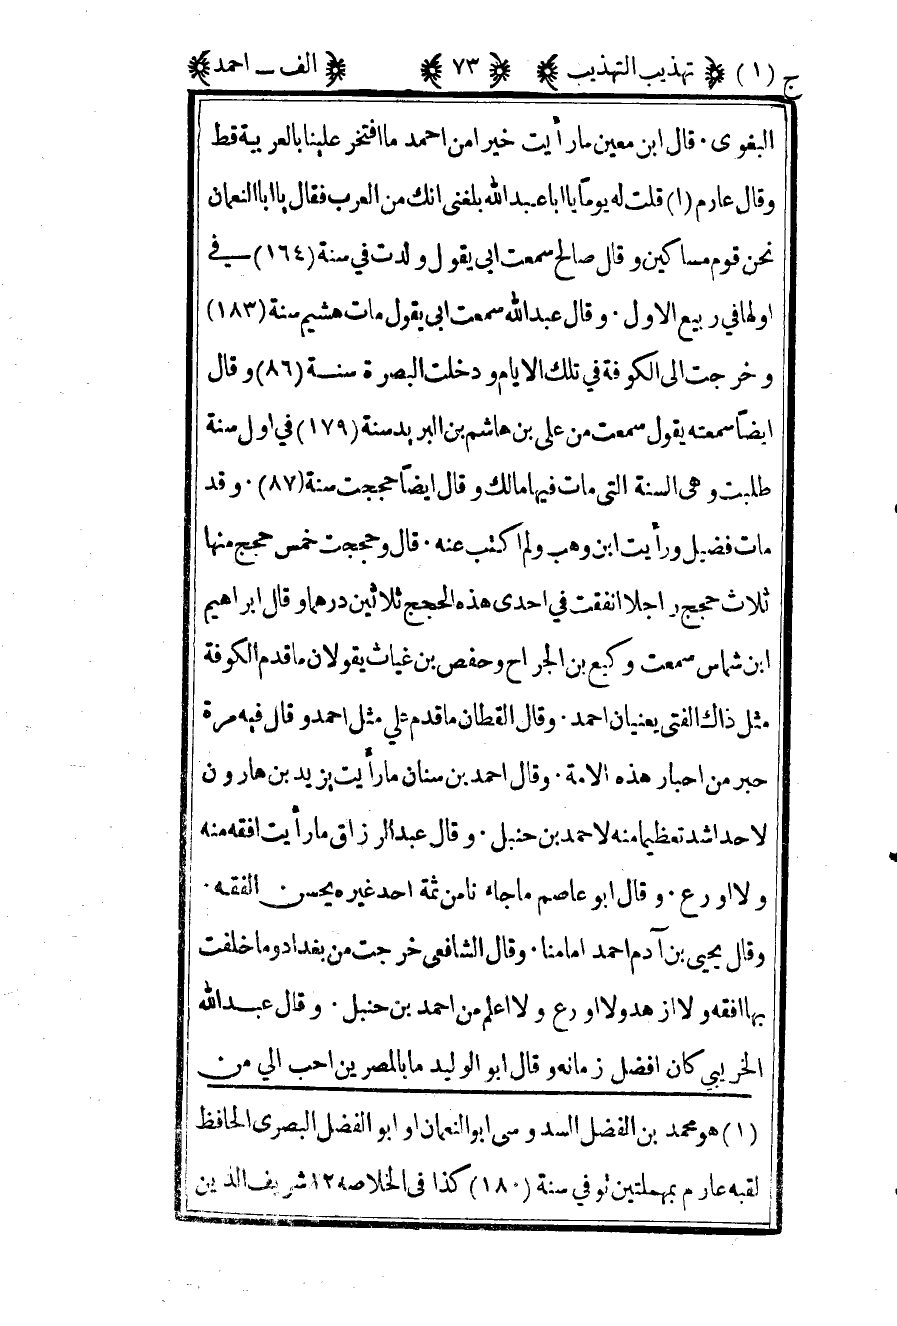 ج (١) تهذيب التهذيب ٧٣ الف ــ احمد
البغوى٠ قال ابن معين ما رأيت خيرا من احمد ما افتخر علينا بالعربية قط
وقال عارم (١) قلت له يوماً يا ابا عبد الله بلغنى انك من العرب فقال يا ابا النعمان
نحن قوم مساكين و قال صالح سمعت ابى يقول ولدت في سنة (١٦٤) في
اولها في ربيع الاول ٠ و قال عبد الله سمعت ابى يقول مات هشيم سنة (١٨٣)
وخرجت الى الكوفة في تلك الايام و دخلت البصرة سنة (٨٦) و قال
ايضاً سمعته يقول سمعت من على بن هاشم بن البريد سنة (١٧٩) في اول سنة
طلبت و هى السنة التى مات فيها مالك و قال ايضاً حججت سنة (٨٧) ٠ و قد
مات فضيل و رأيت ابن وهب ولم اكتب عنه ٠ قال وحججت خمس حجج منها
ثلاث حجج راجلا انفقت في احدى هذه الحجج ثلاثين درهما و قال ابراهيم
ابن شماس سمعت وكيع بن الجراح وحفص بن غياث يقولان ما قدم الكوفة
مثل ذاك الفتى يعنيان احمد ٠ وقال القطان ما قدم علي مثل احمد و قال فيه مرة
حبر من احبار هذه الامة ٠ وقال احمد بن سنان ما رأيت يزيد بن هارون
لاحد اشد تعظيما منه لاحمد بن حنبل ٠ و قال عبد الرزاق ما رأيت افقه منه
ولا اورع ٠ و قال ابو عاصم ما جاءنا من ثمة احد غيره يحسن الفقه ٠
وقال يحيى بن آدم احمد امامنا ٠ وقال الشافعى خرجت من بغداد وما خلفت
بها افقه ولا ازهد ولا اورع ولا اعلم من احمد بن حنبل ٠ و قال عبد الله
الخريبي كان افضل زمانه و قال ابو الوليد ما بالمصرين احب الي من
(١) هو محمد بن الفضل السدوسى ابو النعمان او ابو الفضل البصرى الحافظ
لقبه عارم بمهملتين توفي سنة (١٨٠) كذا فى الخلاصه ١٢ شريف الدين